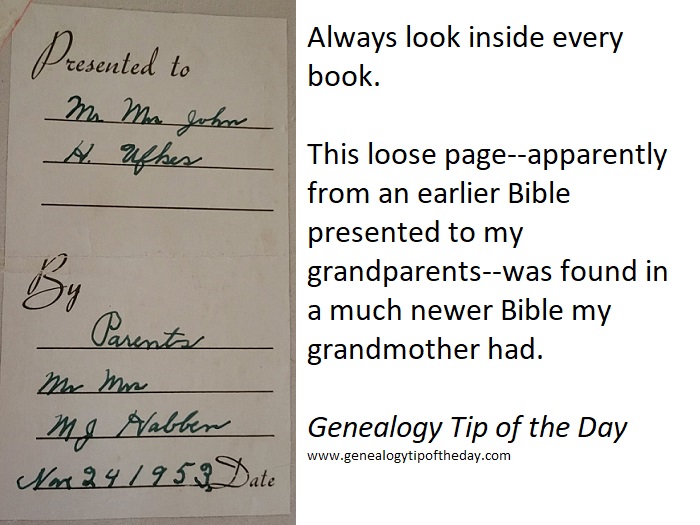 Presented to
Mr Mrs John
H. Ufkes
By
Parents
Mr Mrs
M J Habben
Nov 24 1953 Date
Always look inside every
book.
This loose page--apparently
from an earlier Bible
presented to my
grandparents--was found in
a much newer Bible my
grandmother had.
Genealogy Tip of the Day
www.genealogytipoftheday.com